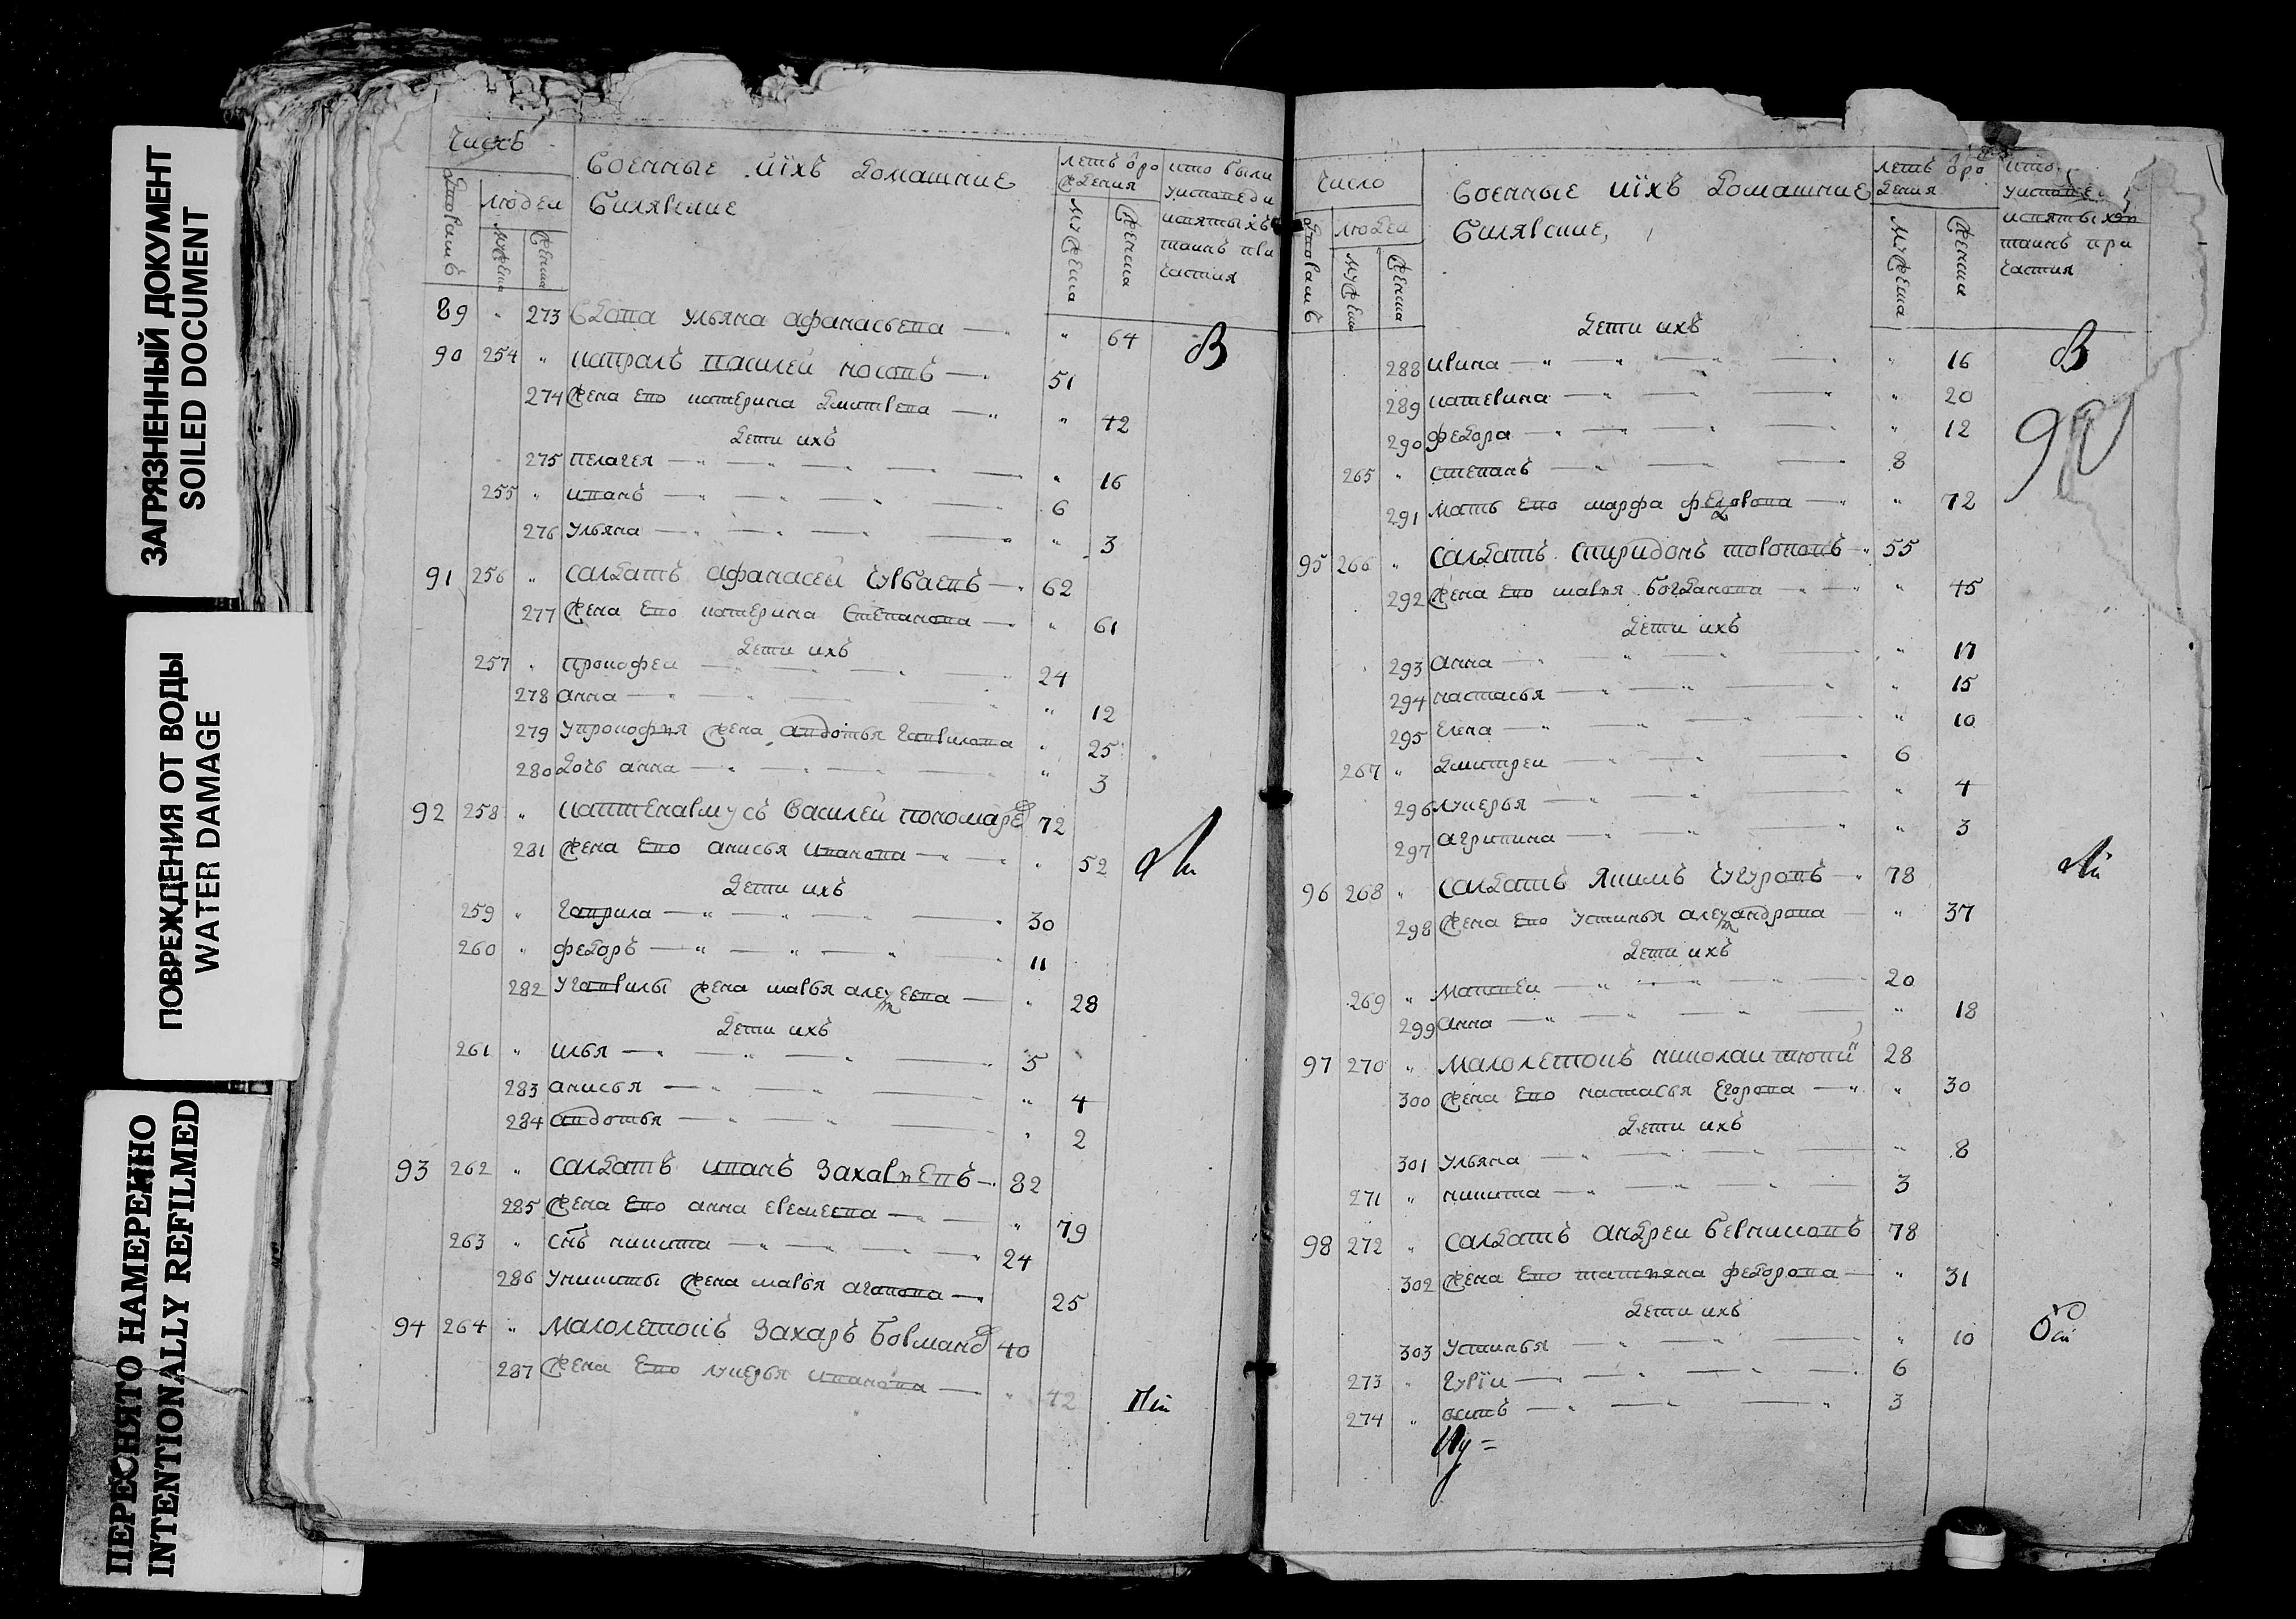 ЗАГРЯЗНЕННЫЙ ДОКУМЕНТ
SOILED DOCUMENT
ПОВРЕЖДЕНИЯ ОТ ВОДЫ
WATER DAMAGE
ПЕРЕСНЯТО НАМЕРЕННО
INTENTIONALLY REFILMED
Число
дворовъ
людеи
мужеска
женска
Военные ихъ домашние
Билявские
летъ о ро
ждения
мужеска
женска
кто были
у исповеди
и святыхъ
таинъ при
частия
89 " 273 вдова ульяна афанасьева — " 64
90 254 " капралъ василеи носовъ — 51
274 жена ево катерина дмитрева — " 42
дети ихъ
275 пелагея — " 16
255 " иванъ — 6
276 ульяна — " 3
91 256 " салдатъ афанасеи чурбаевъ — 62
277 жена ево катерина степанова — " 61
дети ихъ
257 " прокофеи — 24
278 анна — " 12
279 у прокофия жена авдотья гаврилова " 25
280 дочь анна — " 3
92 258 " каптенармусъ василеи пономаре 72
281 жена ево анисья иванова — " 52
дети ихъ
259 " гаврила — 30
260 " федоръ — 11
282 у гаврилы жена марья алексеева — " 28
дети ихъ
261 " илья — 5
283 анисья — " 4
284 авдотья — " 2
93 262 " салдатъ иванъ захарьевъ — 82
285 жена ево анна еремеева — " 79
263 " снъ никита — 24
286 у никиты жена марья агапова — 25
94 264 " малолетокъ захаръ борман 40
287 жена ево лукерья иванова — " 42
Число
дворовъ
людеи
мужеска
женска
Военные ихъ домашние
Билявские,
летъ о ро
дения
мужеска
женска
кто
у исповеди
и святыхъ
таинъ при
частия
дети ихъ
288 ирина — " 16
289 катерина — " 20
290 федора — " 12
265 " степанъ — 8
291 мать ево марфа федорова — " 72
95 266 " салдатъ спиридонъ тороповъ — 55
292 жена ево марья богданова — " 45
дети ихъ
293 анна — " 17
294 настасья — " 15
295 елена — " 10
267 " дмитреи — 6
296 лукерья — " 4
297 агрипина — " 3
96 268 " салдатъ якимъ чугуровъ — 78
298 жена ево устинья александрова — " 37
дети ихъ
269 " матвеи — 20
299 анна — " 18
97 270 " малолетокъ николаи 28
300 жена ево настасья егорова — " 30
дети ихъ
301 ульяна — " 8
271 " никита — 3
98 272 " салдатъ андреи берниковъ 78
302 жена ево татьяна федорова — " 31
дети ихъ
303 устинья — " 10
273 " гурïи — 6
274 " — 3